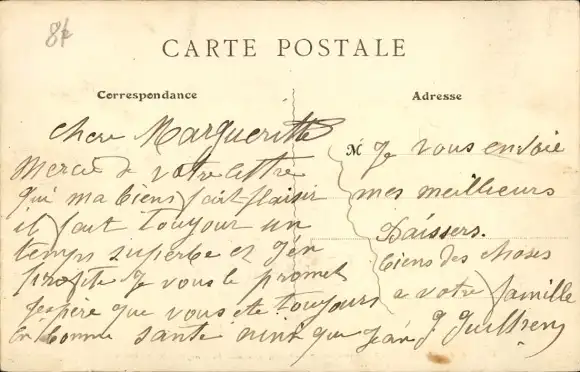 8f
CARTE POSTALE
Correspondance
Adresse
chere Margueritte
Merci de votre lettre
qui ma biens fait plaisir
il fait toujour un
temps superbe et j'en
profite je vous le promet
J'espère que vous ete toujours
en bonne santé ainsi que jean
M
Je vous envoie
mes meilleurs
Baissers.
biens des choses
a votre famille